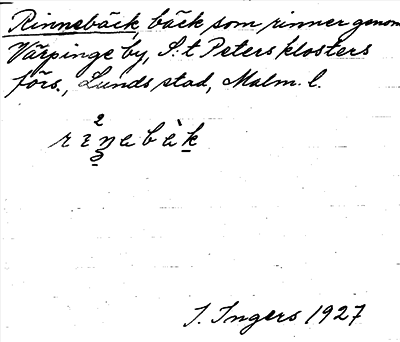 Rinnebäck, bäck som rinner genom
Värpinge by, S:t Peters klosters
förs., Lunds stad, Malm. l.
2
I. Ingers 1927